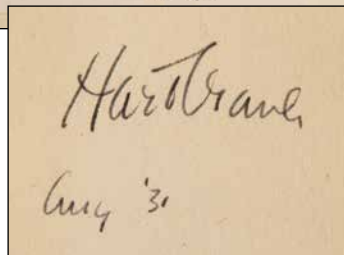 Hart Crane
Aug '31